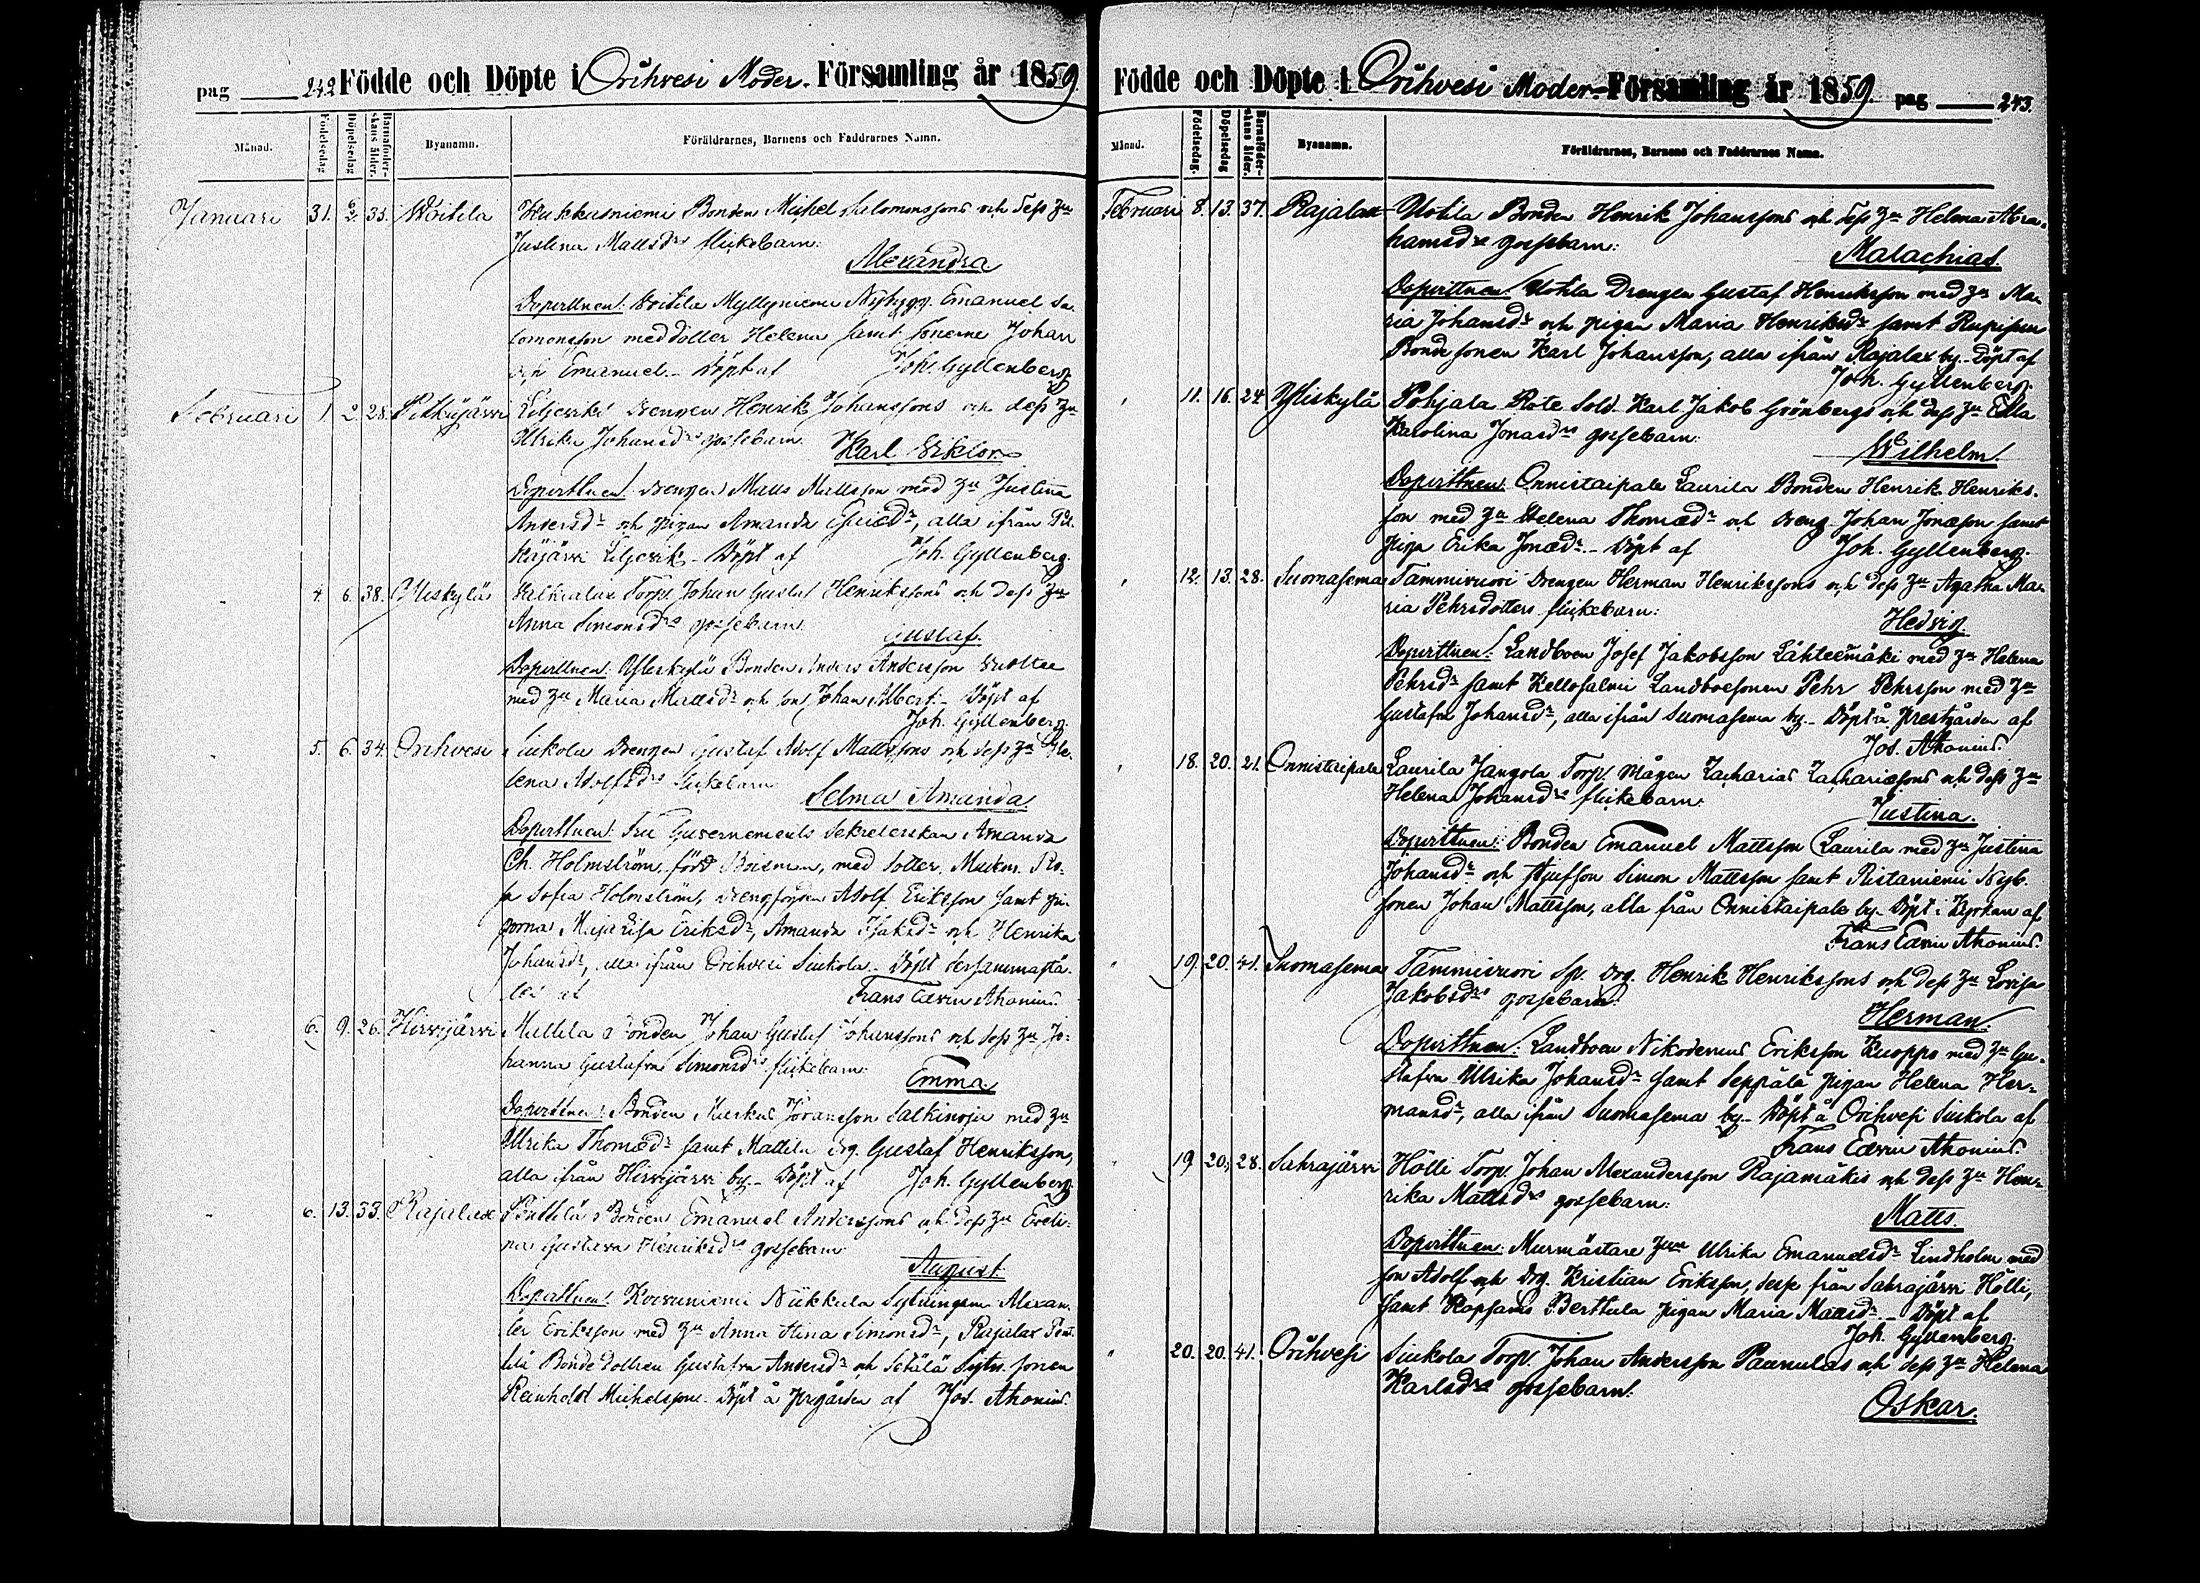 pag 242 Födde och Döpte i Orihvesi Moder- Församling år 1859.
Månad. Födelsedag Döpelsedag Barnaföderskans ålder. Bynamn. Föräldrarnes, Barnens och Faddrarnes Namn.
Januari 31. 6/2. 35. Woitila Bonden Michel Salomonssons och dess hu
Justina Mattsdrs flickebarn:
Alexandra
Dopvittnen: Woitila Myllyniemi Nybygg. Emanuel Sa-
lomonsson med dotter Helena samt sönerne Johan
och Emanuel. Döpt af Joh. Gyllenberg
Februari 1. 2. 28. Pitkäjärvi Liljerik Drengen Henrik Johanssons och dess hu
Ulrika Johansdrs gossebarn Karl Wiktor
Dopvittnen: Drengen Matts Mattsson med hu Justina
Andersdr och pigan Amanda Esaiædr, alla ifrån Pit-
käjärvi Liljerik. Döpt af Joh. Gyllenberg.
4. 6. 38. Yliskylä Torp. Johan Gustaf Henrikssons och dess hu
Anna Simonsdrs gossebarn
Gustaf.
Dopvittnen: Yliskylä Bonden Anders Andersson
med hu Maria Mattsdr och son Johan Albert. Döpt af
Joh. Gyllenberg.
5. 6. 34. Orihvesi Siukola Drengen Gustaf Adolf Mattssons och dess hu He-
lena Adolfsdrs flickebarn
Selma Amanda
Dopvittnen: Fru Guvernements Sekreterskan Amanda
Ch. Holmström, född Boisman, med dotter, Ro-
sa Sofia Holmström, Adolf Eriksson samt pi-
gorna Maja Lisa Eriksdr, Amanda Isaksdr och Henrika
Johansdr, alla ifrån Orihvesi Siukola. Döpt dersammastä-
des af Frans Edvin Ahonius.
6. 9. 26. Hirvijärvi Mattila Bonden Johan Gustaf Johanssons och dess hu Jo-
hanna Gustafva Simonsdrs flickebarn
Emma
Dopvittnen: Bonden Markus Johansson Salkinoja med hu
Ulrika Thomædr samt Mattila drg. Gustaf Henriksson,
alla ifrån Hirvijärvi by. Döpt af Joh. Gyllenberg
6. 13. 33. Rajalax Penttilä Bonden Emanuel Anderssons och dess hu Eveli-
na Gustava Henriksdrs gossebarn
August
Dopvittnen: Koivuniemi Niikkula Sytningsm. Alexan-
der Eriksson med hu Anna Stina Simonsdr, Rajalax Pent-
tilä Bonde dottren Gustafva Andersdr och Setälä Sytn. sonen
Reinhold Michelsson. Döpt å prgården af Jos. Ahonius.
Födde och Döpte i Orihvesi Moder- Församling år 1859. pag 243.
Månad. Födelsedag. Döpelsedag Barnaföderskans ålder. Bynamn. Föräldrarnes, Barnens och Faddrarnes Namn.
Februari 8. 13. 37. Rajalax Uotila Bonden Henrik Johanssons och dess hu Helena Abra-
hamsdrs gossebarn:
Malachias.
Dopvittnen: Uotila Drengen Gustaf Henriksson med hu Ma-
ria Johansdr och pigan Maria Henriksdr samt
Bonde sonen Karl Johansson, alla ifrån Rajalax by. Döpt af
Joh. Gyllenberg.
11. 16. 24. Yliskylä Pohjala Rote Sold. Karl Jakob Grönbergs och dess hu
Karolina Jonasdrs gossebarn:
Wilhelm.
Dopvittnen: Onnistaipale Laurila Bonden Henrik Henriks-
son med hu Helena Thomædr och dreng Johan Jonæson samt
piga Erika Jonædr. Döpt af Joh. Gyllenberg.
12. 13. 28. Suomasema Tammivuori Drengen Herman Henrikssons och dess hu Agatha Ma-
ria Pehrsdotters flickebarn:
Hedvig.
Dopvittnen: Landboen Josef Jakobsson Lähteemäki med hu Helena
Pehrsdr samt Kellosalmi Landboesonen Pehr Pehrsson med hu
Gustafva Johansdr, alla ifrån Suomasema by. Döpt å prestgården af
Jos. Ahonius.
18. 20. 21. Onnistaipale Laurila Jangola Torp. Mågen Zacharias Zachariæsons och dess hu
Helena Johansdrs flickebarn:
Justina.
Dopvittnen: Bonden Emanuel Mattsson Laurila med hu Justina
Johansdr och Simon Mattsson samt Ristaniemi Nyb.
sonen Johan Mattsson, alla från Onnistaipale by. Döpt i Kyrkan af
Frans Edvin Ahonius.
19. 20. 41. Suomasema Tammivuori Sp. drg. Henrik Henrikssons och dess hu Lovisa
Jakobsdrs gossebarn:
Herman.
Dopvittnen: Landboen Nikodemus Eriksson Kuoppo med hu Gu-
stafva Ulrika Johansdr samt Seppälä pigan Helena Her-
mansdr, alla ifrån Suomasema by. Döpt å Orihvesi Siukola af
Frans Edvin Ahonius.
19 20. 28. Sahrajärvi Hölli Torp. Johan Alexandersson Rajamäkis och dess hu Hen-
rika Mattsdrs gossebarn:
Matts.
Dopvittnen: Murmästare hun Ulrika Emanuelsdr Lindholm med
son Adolf och drg. Kristian Eriksson, desse från Sahrajärvi Hölli,
samt Berttula pigan Maria Mattsdr. Döpt af
Joh. Gyllenberg.
20. 20. 41. Orihvesi Siukola Torp. Johan Andersson Paunulas och dess hu Helena
Karlsdrs gossebarn:
Oskar.